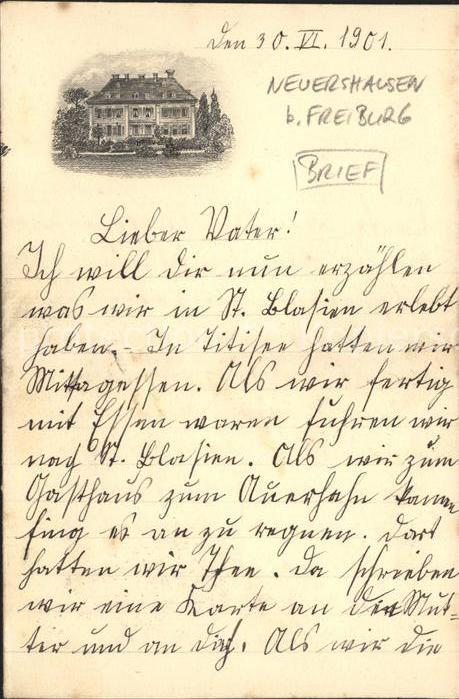 Den 30. VI. 1901.
NEUERSHAUSEN
b. FREIBURG
BRIEF
Lieber Vater!
Ich will Dir nun erzählen
was wir in St. Blasien erlebt
haben. – In Titisee hatten wir
Mittagessen. Als wir fertig
mit Essen waren fuhren wir
nag St. Blasien. Als wir zum
Gasthaus zum Auerhahn kamen
fing es an zu regnen. Dort
hatten wir Thee. Da schrieben
wir eine Karte an die Mut-
ter und an dich. Als wir die